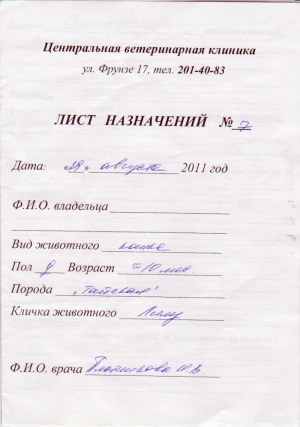 Центральная ветеринарная клиника
ул. Фрунзе 17, тел. 201-40-83
ЛИСТ НАЗНАЧЕНИЙ № 7
Дата: «29» августа 2011 год
Ф.И.О. владельца
Вид животного кошка
Пол ♀ Возраст ≈10 мес
Порода "Тайская"
Кличка животного
Ф.И.О. врача